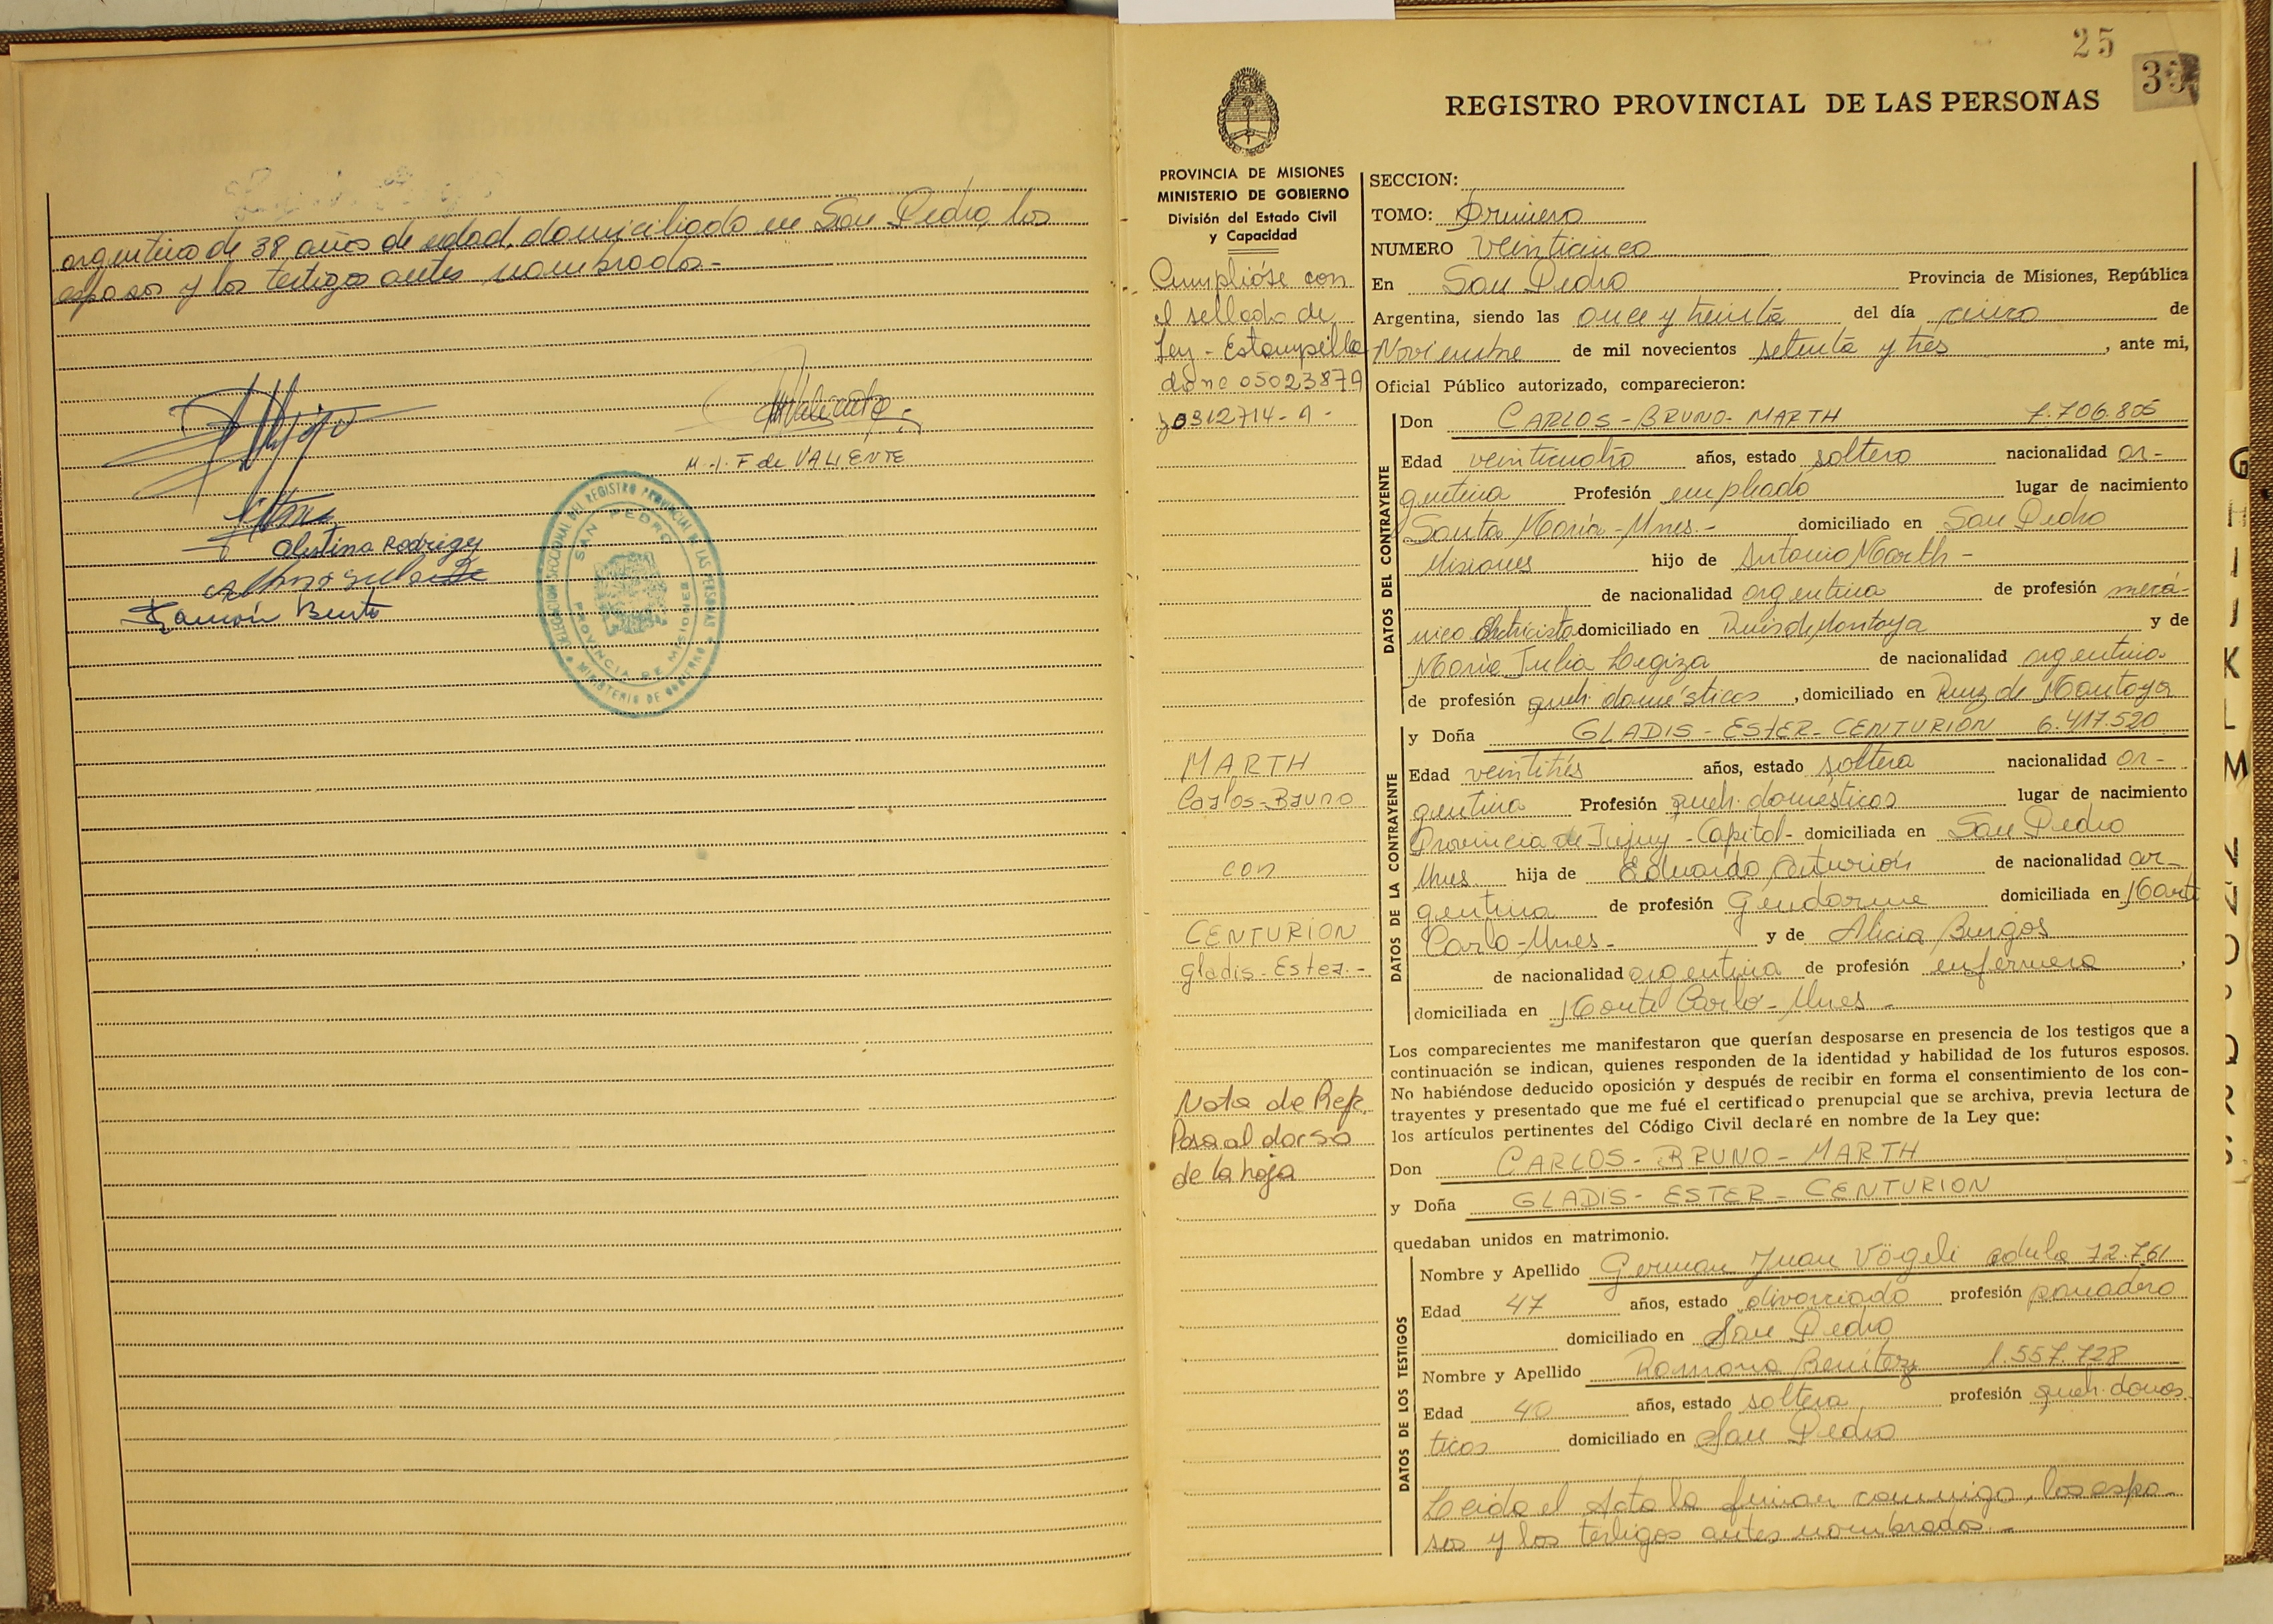 argentino de 38 años de edad, domiciliado en San Pedro, los
esposos y los testigos antes nombrados-
M. I. F de VALIENTE
Celestina Rodriguez
Ramón Benito
DELEGACION SECCIONAL DEL REGISTRO PROVINCIAL DE LAS PERSONAS
MINISTERIO DE GOBIERNO
SAN PEDRO
PROVINCIA DE MISIONES
25
39
REGISTRO PROVINCIAL DE LAS PERSONAS
PROVINCIA DE MISIONES
MINISTERIO DE GOBIERNO
División del Estado Civil
y Capacidad
Cumplióse con
el sellado de
Ley - Estampilla
do nº 05023879
y 0312714-A-
MARTH
Carlos-Bruno
con
CENTURION
Gladis-Ester.-
Nota de Ref.
Pasa al dorso
de la hoja
SECCION:
TOMO: Primero
NUMERO Veinticinco
En San Pedro Provincia de Misiones, República
Argentina, siendo las once y treinta del día cinco de
Noviembre de mil novecientos setenta y tres, ante mi,
Oficial Público autorizado, comparecieron:
DATOS DEL CONTRAYENTE
Don CARLOS-BRUNO-MARTH 7.706.805
Edad veinticuatro años, estado soltero nacionalidad ar-
gentina Profesión empleado lugar de nacimiento
Santa María-Mnes.- domiciliado en San Pedro
Misiones hijo de Antonio Marth-
de nacionalidad argentina de profesión mecá-
nico electricista domiciliado en Ruiz de Montoya y de
María Julia Legiza de nacionalidad argentina
de profesión queh. domésticos, domiciliado en Ruiz de Montoya
DATOS DE LA CONTRAYENTE
y Doña GLADIS-ESTER-CENTURION 6.417.520
Edad veintitrés años, estado soltera nacionalidad ar-
gentina Profesión queh. domésticos lugar de nacimiento
Provincia de Jujuy-Capital- domiciliada en San Pedro
Mnes. hija de Eduardo Centurión de nacionalidad ar-
gentina de profesión Gendarme domiciliada en Monte
Carlo-Mnes- y de Alicia Burgos
de nacionalidad argentina de profesión enfermera,
domiciliada en Monte Carlo-Mnes-
Los comparecientes me manifestaron que querían desposarse en presencia de los testigos que a
continuación se indican, quienes responden de la identidad y habilidad de los futuros esposos.
No habiéndose deducido oposición y después de recibir en forma el consentimiento de los con-
trayentes y presentado que me fué el certificado prenupcial que se archiva, previa lectura de
los artículos pertinentes del Código Civil declaré en nombre de la Ley que:
Don CARLOS-BRUNO-MARTH
y Doña GLADIS-ESTER-CENTURION
quedaban unidos en matrimonio.
DATOS DE LOS TESTIGOS
Nombre y Apellido German Juan Vögeli cédula 72.761
Edad 47 años, estado divorciado profesión panadero
domiciliado en San Pedro
Nombre y Apellido Ramona Benítez 1.557.728
Edad 40 años, estado soltera profesión queh. domés
ticos domiciliado en San Pedro
Leída el Acta la firman conmigo, los espo-
sos y los testigos antes nombrados.-
G
I
J
K
L
M